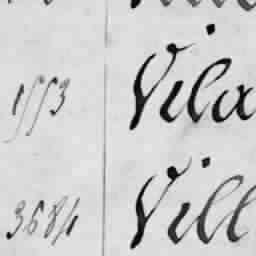 1553 Vila
3684 Vill